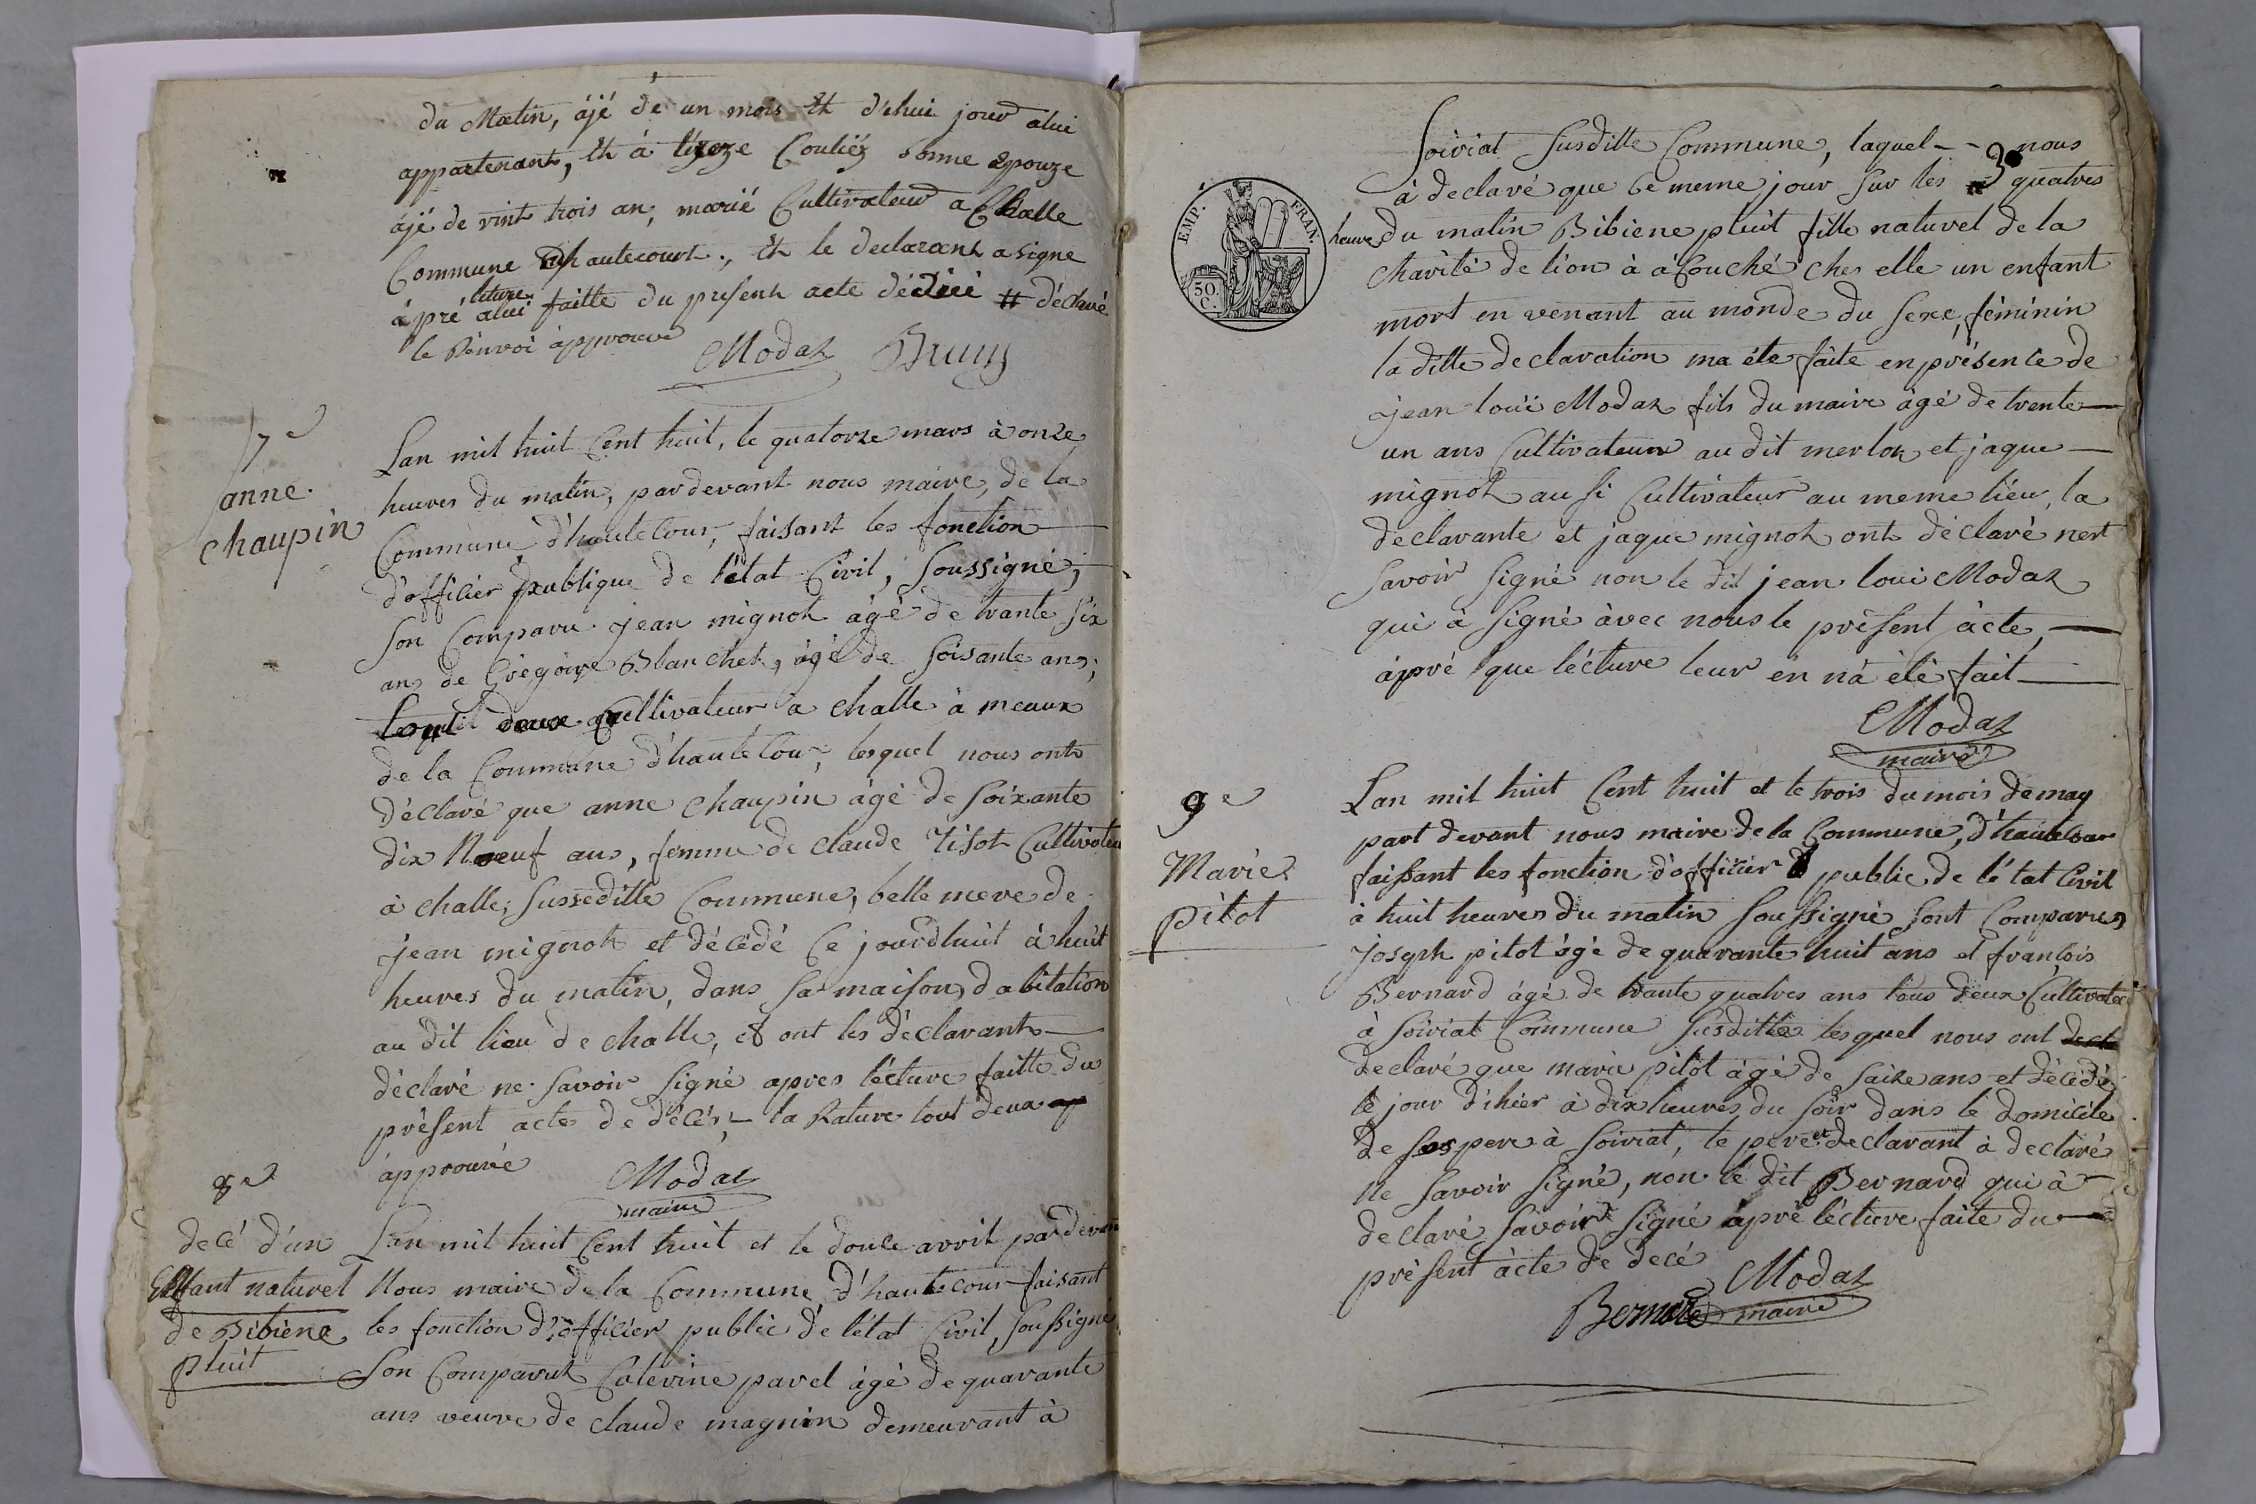 du Matin, âjé de un mois Et d'ehui jour alui
appartenant, Et à Couliéz sonne epouze
âjé de vint trois an, marié Cultivateur a Challe
Commune d'hautecourt., Et le declarant a signe
âpré lecture alui faitte du present acte décéé # déclaré
le Renvoi âpprouvé
Modaz Brun
7e
anne
chaupin
Lan mil huit Cent huit, le quatorze mars à onze
heures du matin, pardevant nous maire, de la
Commune d'hautecour, faisant les fonction
d'officier publique de l'état Civil, Soussigné;
Son Comparu jean mignot âgé de trante six
ans de Grégoire Blanchet, âgé de soisante ans;
tout deux Cultivateur a challe à meaux
de la Commune d'hautecour, lesquel nous onts
déclaré que anne chaupin âgé de soixante
dix Neuf ans, femme de claude Tisot Cultivateur
à challe, Susseditte Commune, belle mere de
jean mignot et décédé Ce jourdhuit à huit
heures du matin, dans sa maison d'abitation
au dit lieu de challe, et ont les déclarant
déclaré ne savoir signé apres lécture faitte du
présent acte de décés, la Rature tout deux ap
âpprouvé
Modaz
maire
8e
decé d'un
Enfant naturel
de Bibiene
pluit
Lan mil huit Cent huit et le douce avril pardevan
Nous maire de la Commune d'hautecour faisant
les fonction d'officier public de létat Civil Soussigné
Son Comparut Caterine parel âgé de quarante
ans veuve de claude magnin demeurant à
Soiriat Susditte Commune, laquel nous
à declaré que ce meme jour sur les quatres
EMP. FRAN.
50 C.
heure du matin Bibiene pluit fille naturel de la
charité de lion à âcouché ches elle un enfant
mort en venant au monde du sexe féminin
la ditte declaration ma éte faite en présence de
jean louï Modaz fils du maire âgé de trente
un ans Cultivateur au dit merlon et jaque
mignot aussi Cultivateur au meme lieu, la
declarante et jaque mignot ont déclaré nert
savoir signé non le dit jean loui Modaz
qui à signé àvec nous le présent àcte,
âpré que lécture leur en na été fait
Modaz
maire
9e
Marie
pitot
Lan mil huit Cent huit et le trois du mois de may
part devant nous maire de la Commune, d'hautecour
faissant les fonction d'officier public de létat Civil
à huit heures du matin Soussigné, sont Comparus
joseph pitot âgé de quarante huit ans et françois
Bernard âgé de trante quatres ans tous deux Cultivateur
à Soiriat Commune Susditte lesquel nous ont decla
declaré que marie pitot âgé de saize ans et décédé
le jour d'hiér à dix heures du soir dans le domicile
de ses pere à Soiriat, le pere et declarant à declaré
ne savoir signé, non le dit Bernard qui à
declaré savoir signé âpré lécture faite du
présent àcte de decé
Modaz
Bernard maire